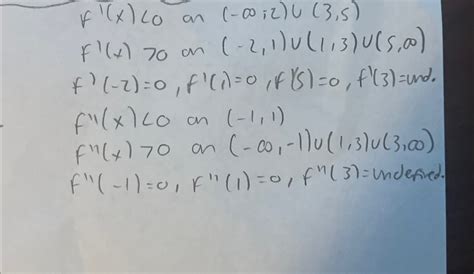 f'(x)<0 on (-∞,2)∪(3,5)
f'(x)>0 on (-2,1)∪(1,3)∪(5,∞)
f'(-2)=0, f'(1)=0, f'(5)=0, f'(3)=und.
f''(x)<0 on (-1,1)
f''(x)>0 on (-∞,-1)∪(1,3)∪(3,∞)
f''(-1)=0, f''(1)=0, f''(3)=undefined.